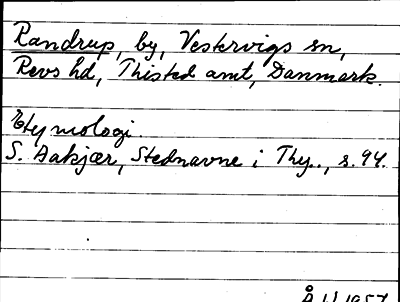 Randrup, by, Vestervigs sn,
Revs hd, Thisted amt, Danmark.
Etymologi.
S. Aakjær, Stednavne i Thy., s. 94.
1957